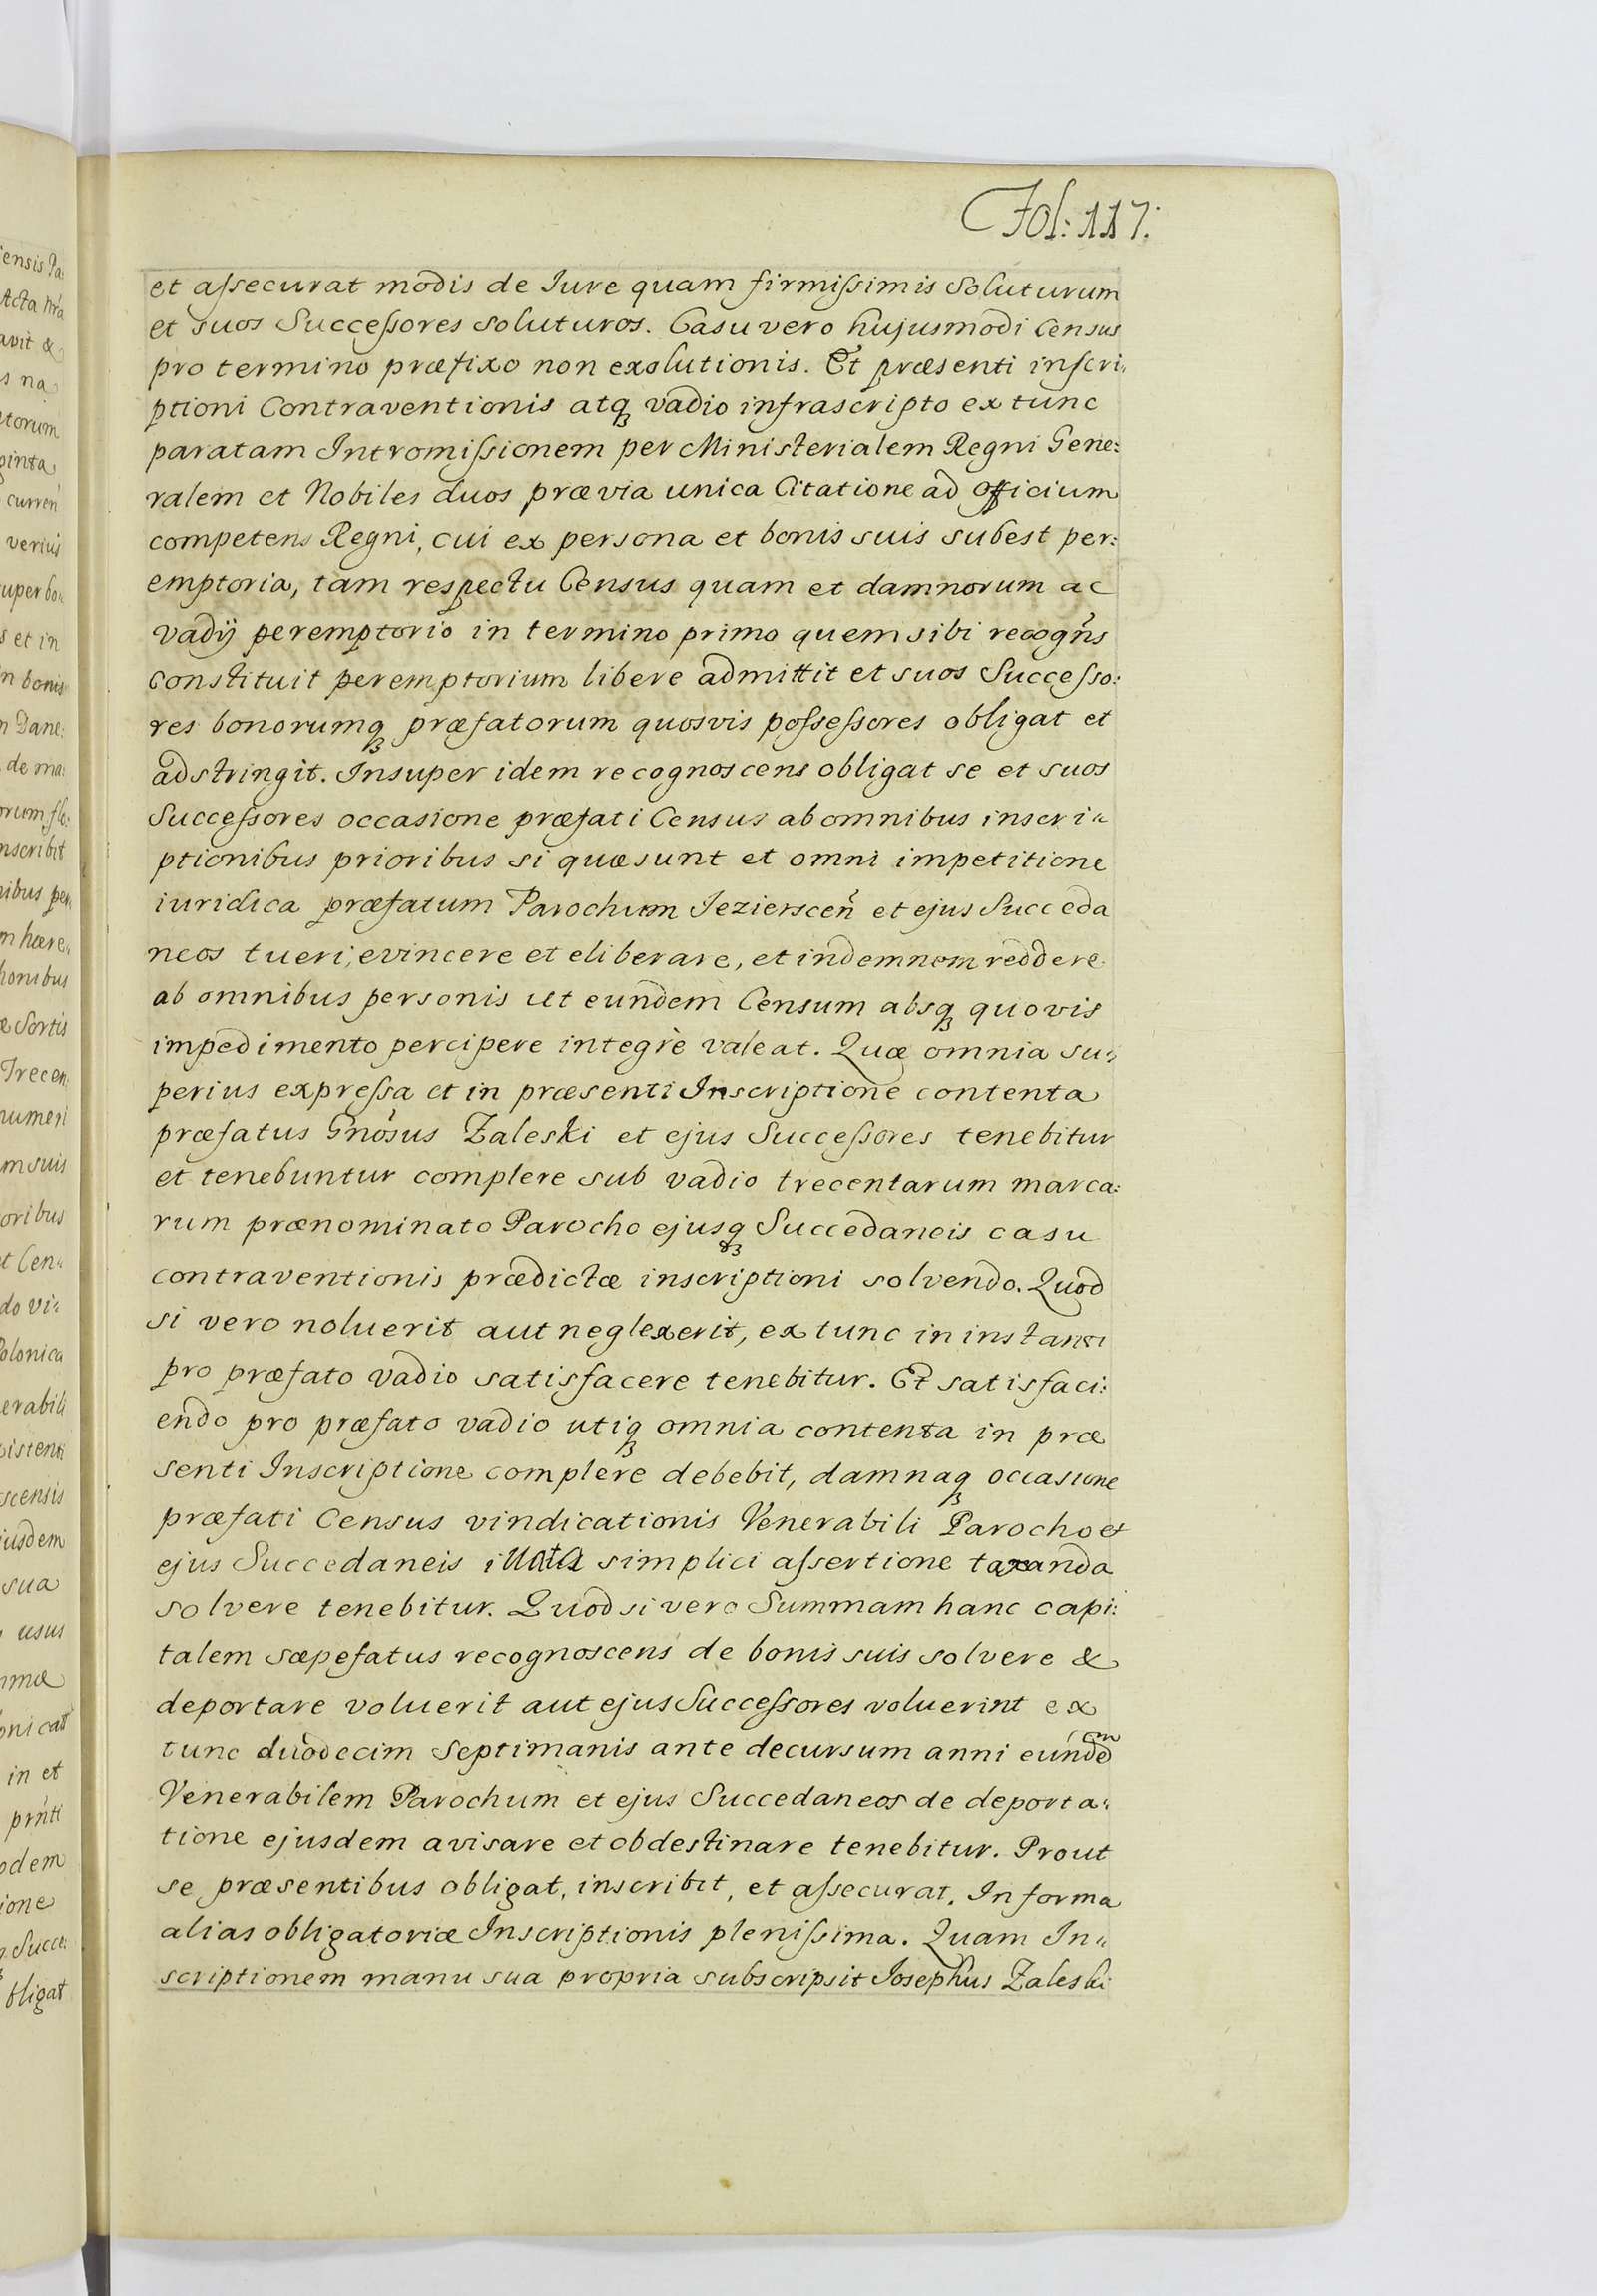 Fol: 117.
et aſsecurat modis de Iure quam firmiſsimis Soluturum
et suos Succeſsores soluturos. Casu vero hujusmodi Census
pro termino præfixo non exolutionis. Et præsenti inscri„
ptioni Contraventionis atqꝫ vadio infrascripto ex tunc
paratam Intromiſsionem per Ministerialem Regni Gene:
ralem et Nobiles duos prævia unica Citatione ad Officium
competens Regni, cui ex persona et bonis suis subest per:
emptoria, tam respectu Census quam et damnorum ac
vadij peremptorio in termino primo quem sibi recogn̄s
constituit peremptorium libere admittit et suos Succeſso:
res bonorumqꝫ præfatorum quosvis poſseſsores obligat et
adstringit. Insuper idem recognoscens obligat se et suos
Succeſsores occasione præfati Census ab omnibus inscri„
ptionibus prioribus si quæ sunt et omni impetitione
iuridica præfatum Parochum Jezierscen̄ et ejus Succeda
neos tueri, evincere et eliberare, et indemnem reddere
ab omnibus personis ut eundem Censum absqꝫ quovis
impedimento percipere integrè valeat. Quæ omnia su„
perius expreſsa et in præsenti Inscriptione contenta
præfatus Gn̄osus Zaleski et ejus Succeſsores tenebitur
et tenebuntur complere sub vadio trecentarum marca:
rum prænominato Parocho ejusqꝫ Succedaneis casu
contraventionis prædictæ inscriptioni solvendo. Quod
si vero noluerit aut neglexerit, ex tunc in instanti
pro præfato vadio satisfacere tenebitur. Et satisfaci:
endo pro præfato vadio utiqꝫ omnia contenta in præ
senti Inscriptione complere debebit, damnaqꝫ occasione
præfati Census vindicationis Venerabili Parocho et
ejus Succedaneis illata simplici aſsertione taxanda
solvere tenebitur. Quod si vero Summam hanc capi:
talem sæpefatus recognoscens de bonis suis solvere &
deportare voluerit aut ejus Succeſsores voluerint ex
tunc duodecim septimanis ante decursum anni eundem
Venerabilem Parochum et ejus Succedaneos de deporta„
tione ejusdem avisare et obdestinare tenebitur. Prout
se præsentibus obligat, inscribit, et aſsecurat. In forma
alias obligatoriæ Inscriptionis pleniſsima. Quam In„
scriptionem manu sua propria subscripsit Josephus Zaleski